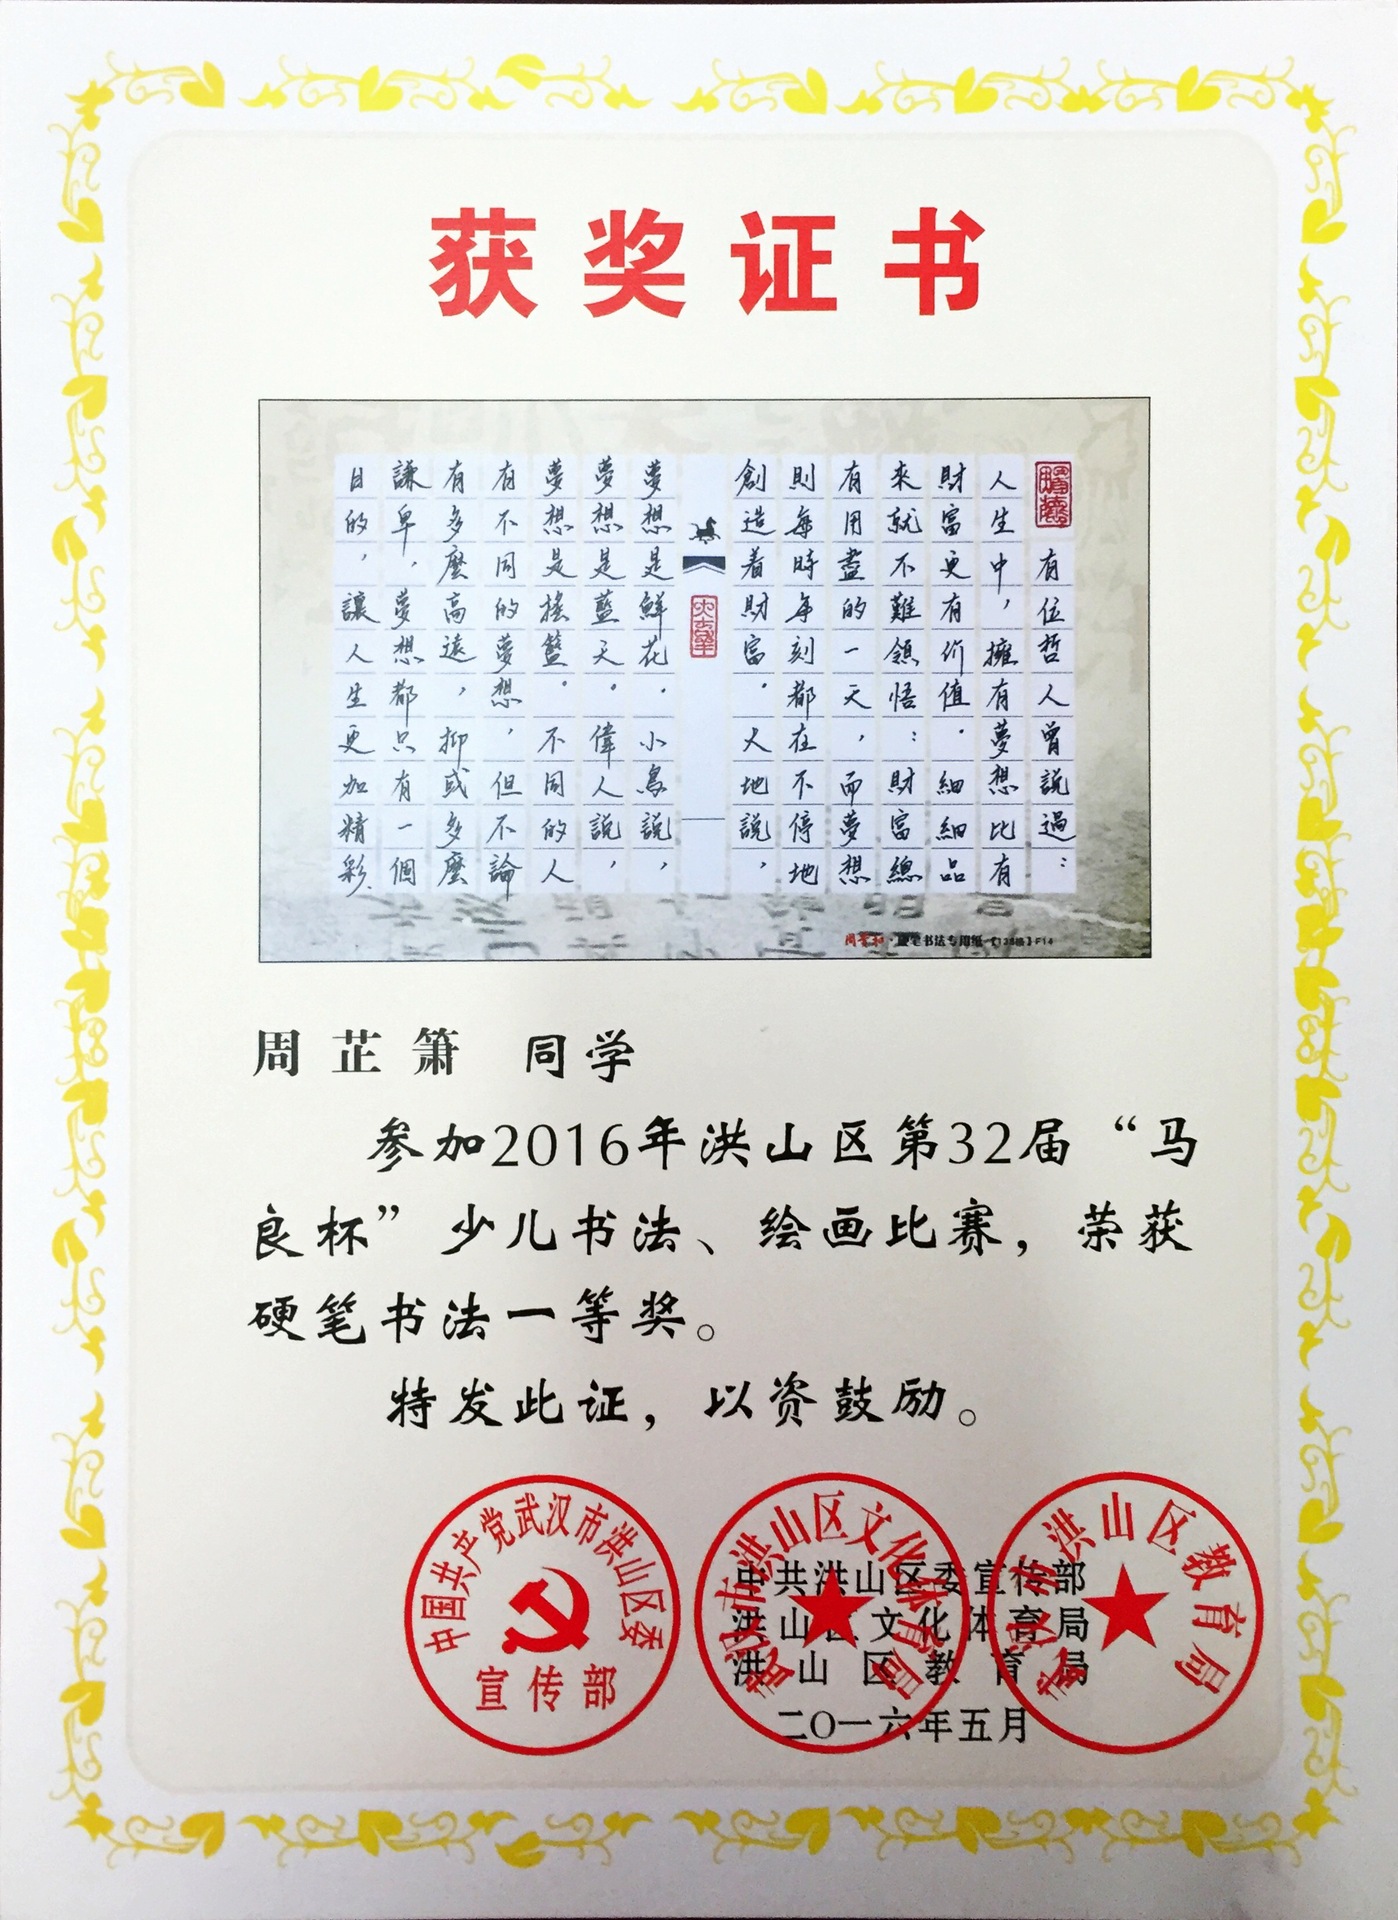 获奖证书
有位哲人曾説過：
人生中，擁有夢想比有
財富更有价值．細細品
來就不難領悟：財富總
有用盡的一天，而夢想
則每時每刻都在不停地
創造着財富．大地説，
夢想是鮮花．小鳥説，
夢想是藍天．偉人説，
夢想是搖籃．不同的人
有不同的夢想，但不論
有多麼高遠，抑或多麼
謙卑，夢想都只有一個
目的，讓人生更加精彩．
硬笔书法专用纸【138格】F14
周芷箫 同学
参加2016年洪山区第32届“马
良杯”少儿书法、绘画比赛，荣获
硬笔书法一等奖。
特发此证，以资鼓励。
中国共产党武汉市洪山区委
宣传部
武汉市洪山区文化体育局
武汉市洪山区教育局
中共洪山区委宣传部
洪山区文化体育局
洪山区教育局
二〇一六年五月